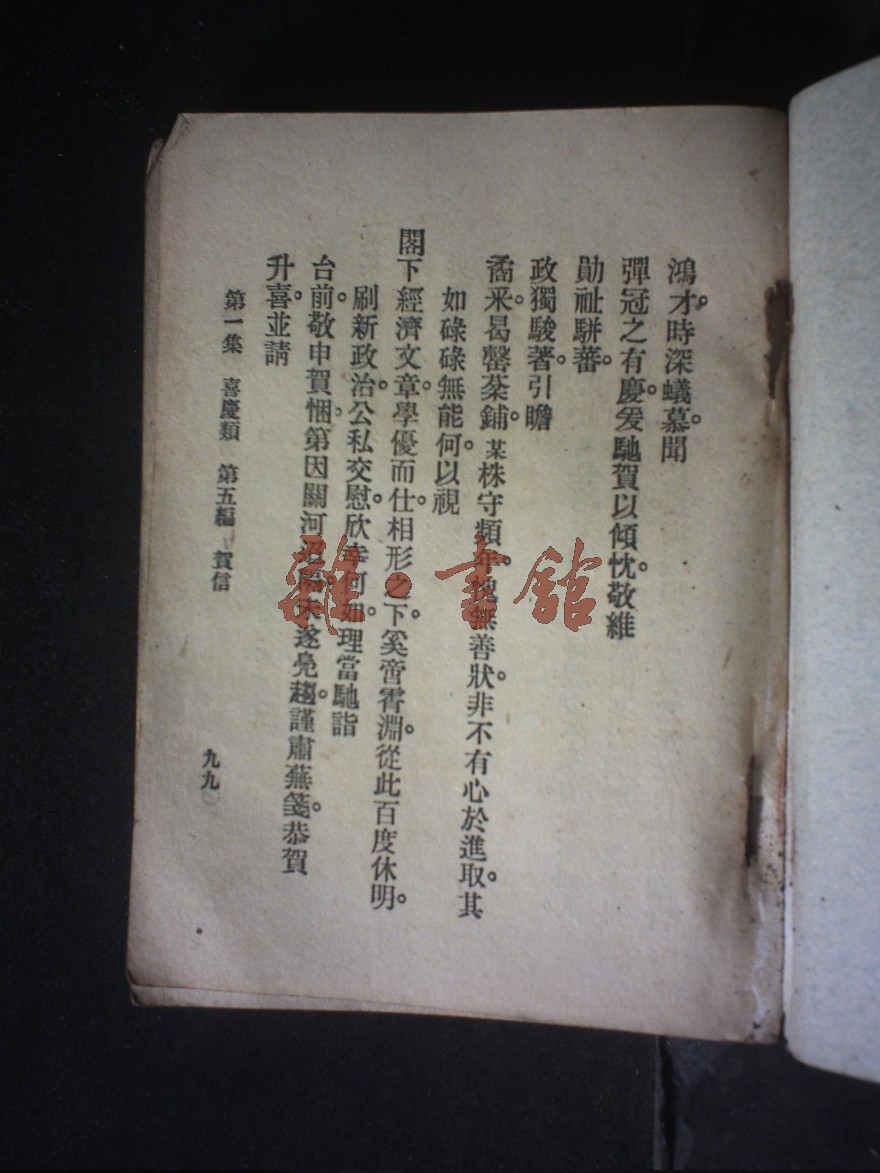 鴻才。時深蟻慕。聞
彈冠之有慶。爰馳賀以傾忱。敬維
勛祉駢蕃。
政獨駿著。引瞻
矞采。曷罄葵鋪。某株守頻年。愧無善狀。非不有心於進取。其
如碌碌無能。何以視
閣下經濟文章。學優而仕。相形之下。奚啻霄淵。從此百度休明。
刷新政治。公私交慰。欣幸何如。理當馳詣
台前。敬申賀悃。第因關河 遂鳧趨。謹肅蕪箋。恭賀
升喜。並請
第一集 喜慶類 第五編 賀信
九九
雜·書館